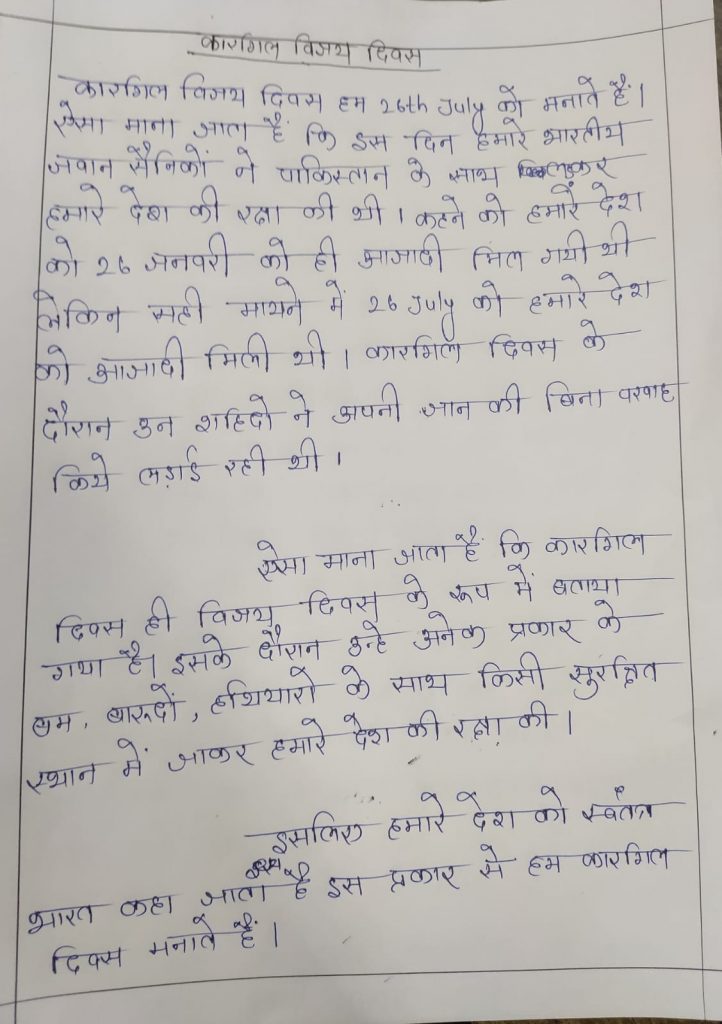 कारगिल विजय दिवस
कारगिल विजय दिवस हम 26th July को मनाते हैं।
ऐसा माना जाता हैं कि इस दिन हमारे भारतीय
जवान सैनिकों ने पाकिस्तान के साथ
हमारे देश की रक्षा की थी। कहने को हमारे देश
को 26 जनवरी को ही आजादी मिल गयी थी
लेकिन सही मायने में 26 July को हमारे देश
को आजादी मिली थी। कारगिल दिवस के
दौरान उन शहिदो ने अपनी जान की बिना परवाह
किये लड़ाई रही थी।
ऐसा माना जाता हैं कि कारगिल
दिवस ही विजय दिवस के रूप में बताया
गया हैं। इसके दौरान उन्हे अनेक प्रकार के
बम, बारूदों, हथियारो के साथ किसी सुरक्षित
स्थान में जाकर हमारे देश की रक्षा की।
इसलिए हमारे देश को स्वतंत्र
भारत कहा जाता हैं इस प्रकार से हम कारगिल
दिवस मनाते हैं।